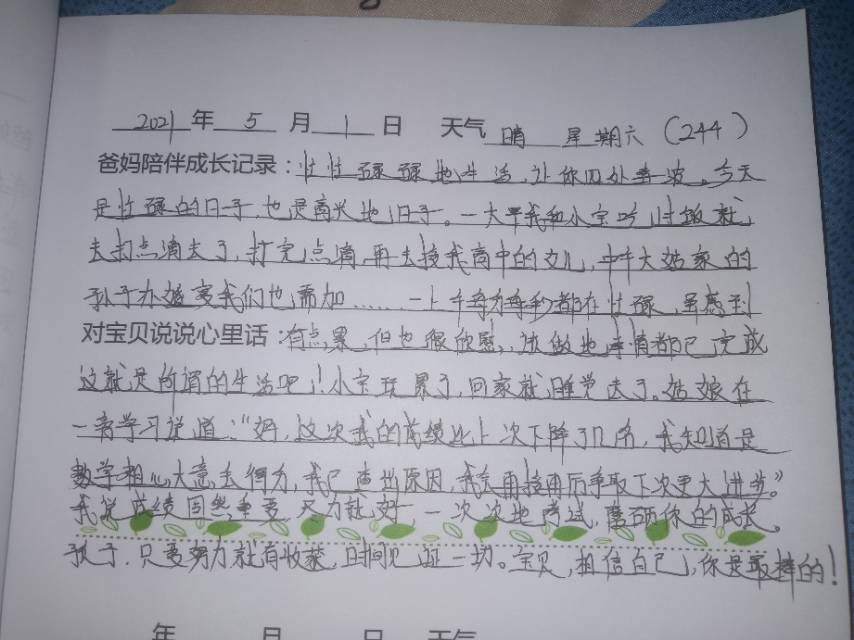 2021年5月1日 天气 晴 星期六(244)
爸妈陪伴成长记录:忙忙碌碌地生活,让你四处奔波。今天
是忙碌的日子,也是高兴地日子。一大早我和小宝吃过饭就
去打点滴去了,打完点滴,再去接我高中的女儿,中午大姑家的
孙子办婚宴我们也需加……一上午每分每秒都在忙碌,虽感到
对宝贝说说心里话:有点累,但也很欣慰,该做地事情都已完成
这就是所谓的生活吧!小宝玩累了,回家就睡觉去了。姑娘在
一旁学习说道:“妈,这次我的成绩比上次下降了几名,我知道是
数学粗心大意丢得分,我已查出原因,我会再接再厉争取下次更大进步。”
我说成绩固然重要,尽力就好,一次次地考试,磨砺你的成长。
孩子,只要努力就有收获,时间见证一切。宝贝,相信自己,你是最棒的!
年 月 日 天气